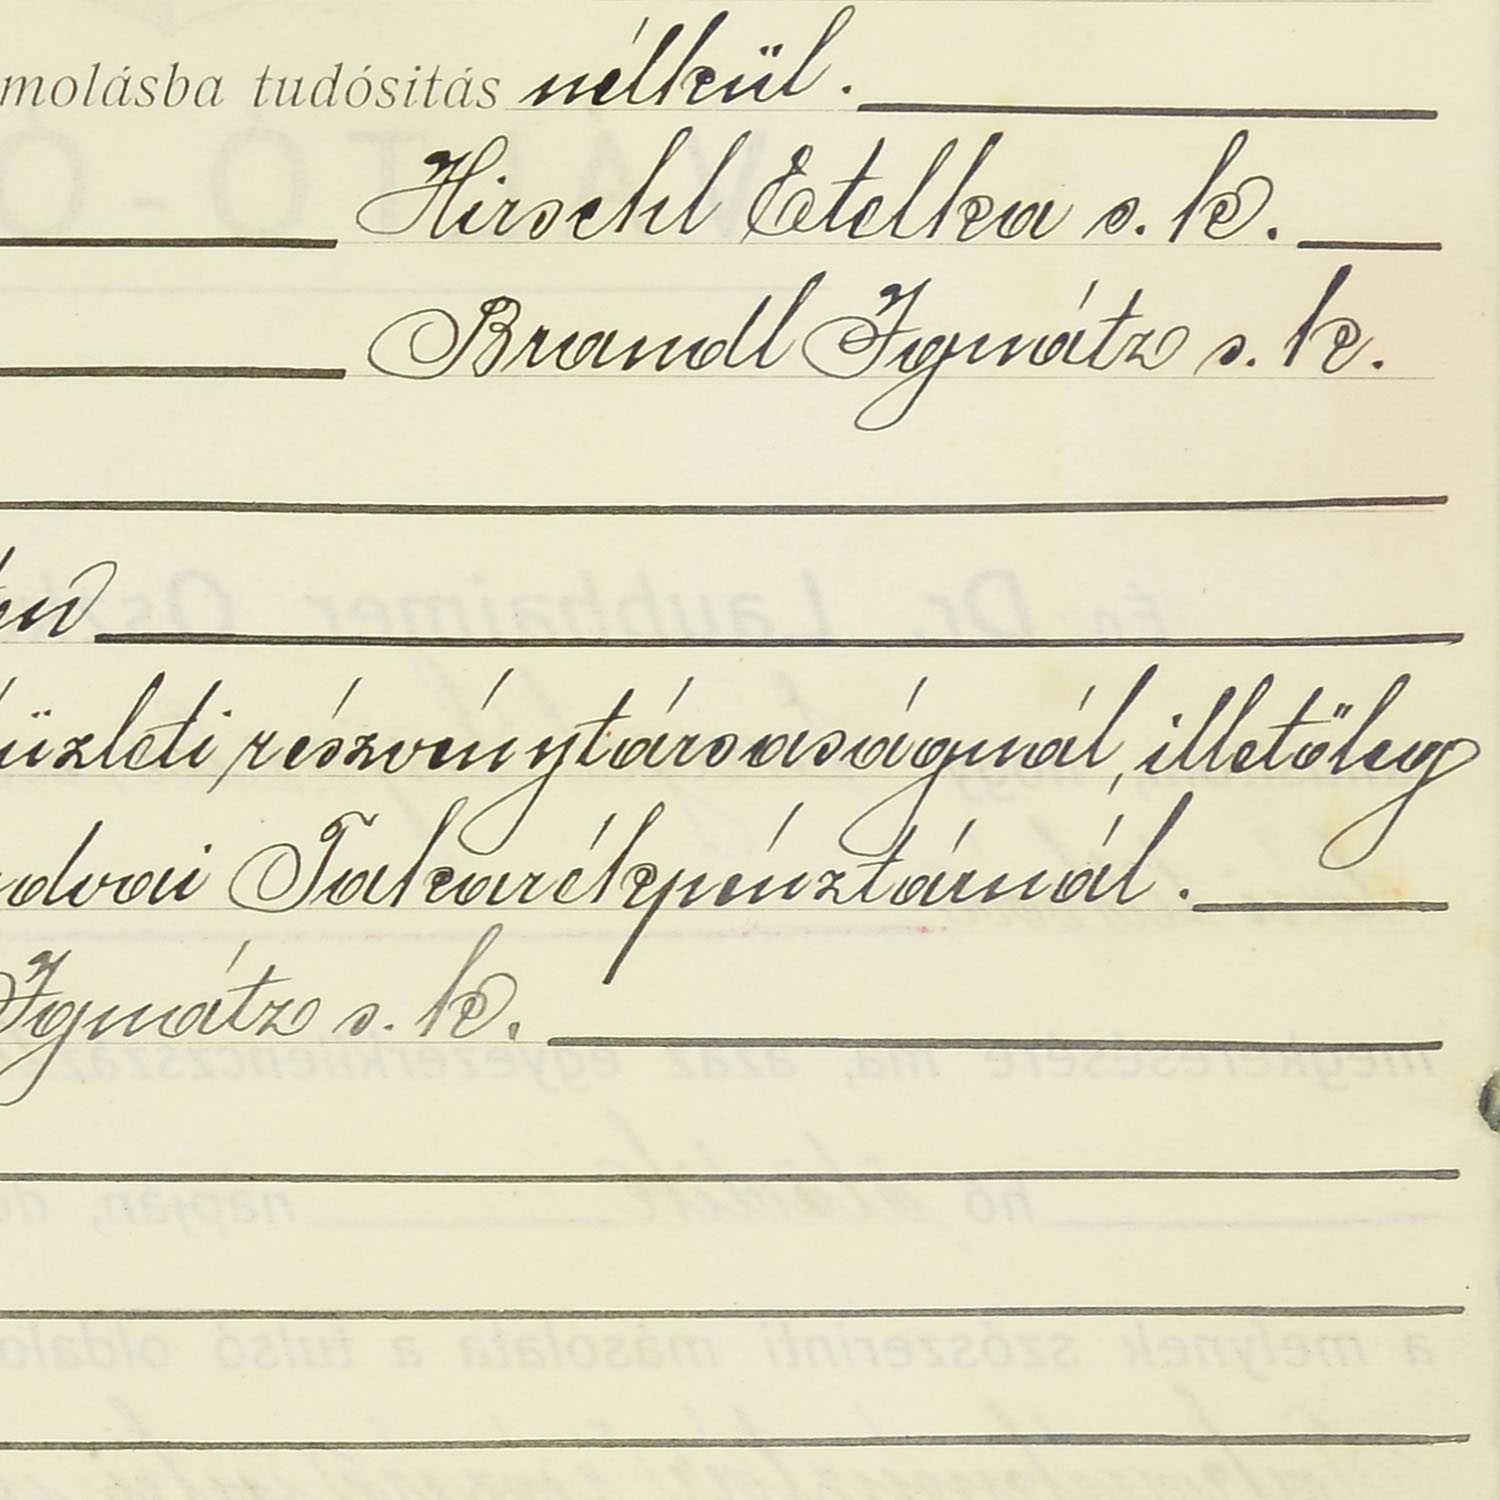 molásba tudósitás nélkül.
Hirschl Etelka s. k.
Brandl Ignátz s. k.
üzleti részvénytársaságnál, illetőleg
Takarékpénztárnál.
Ignátz s. k.